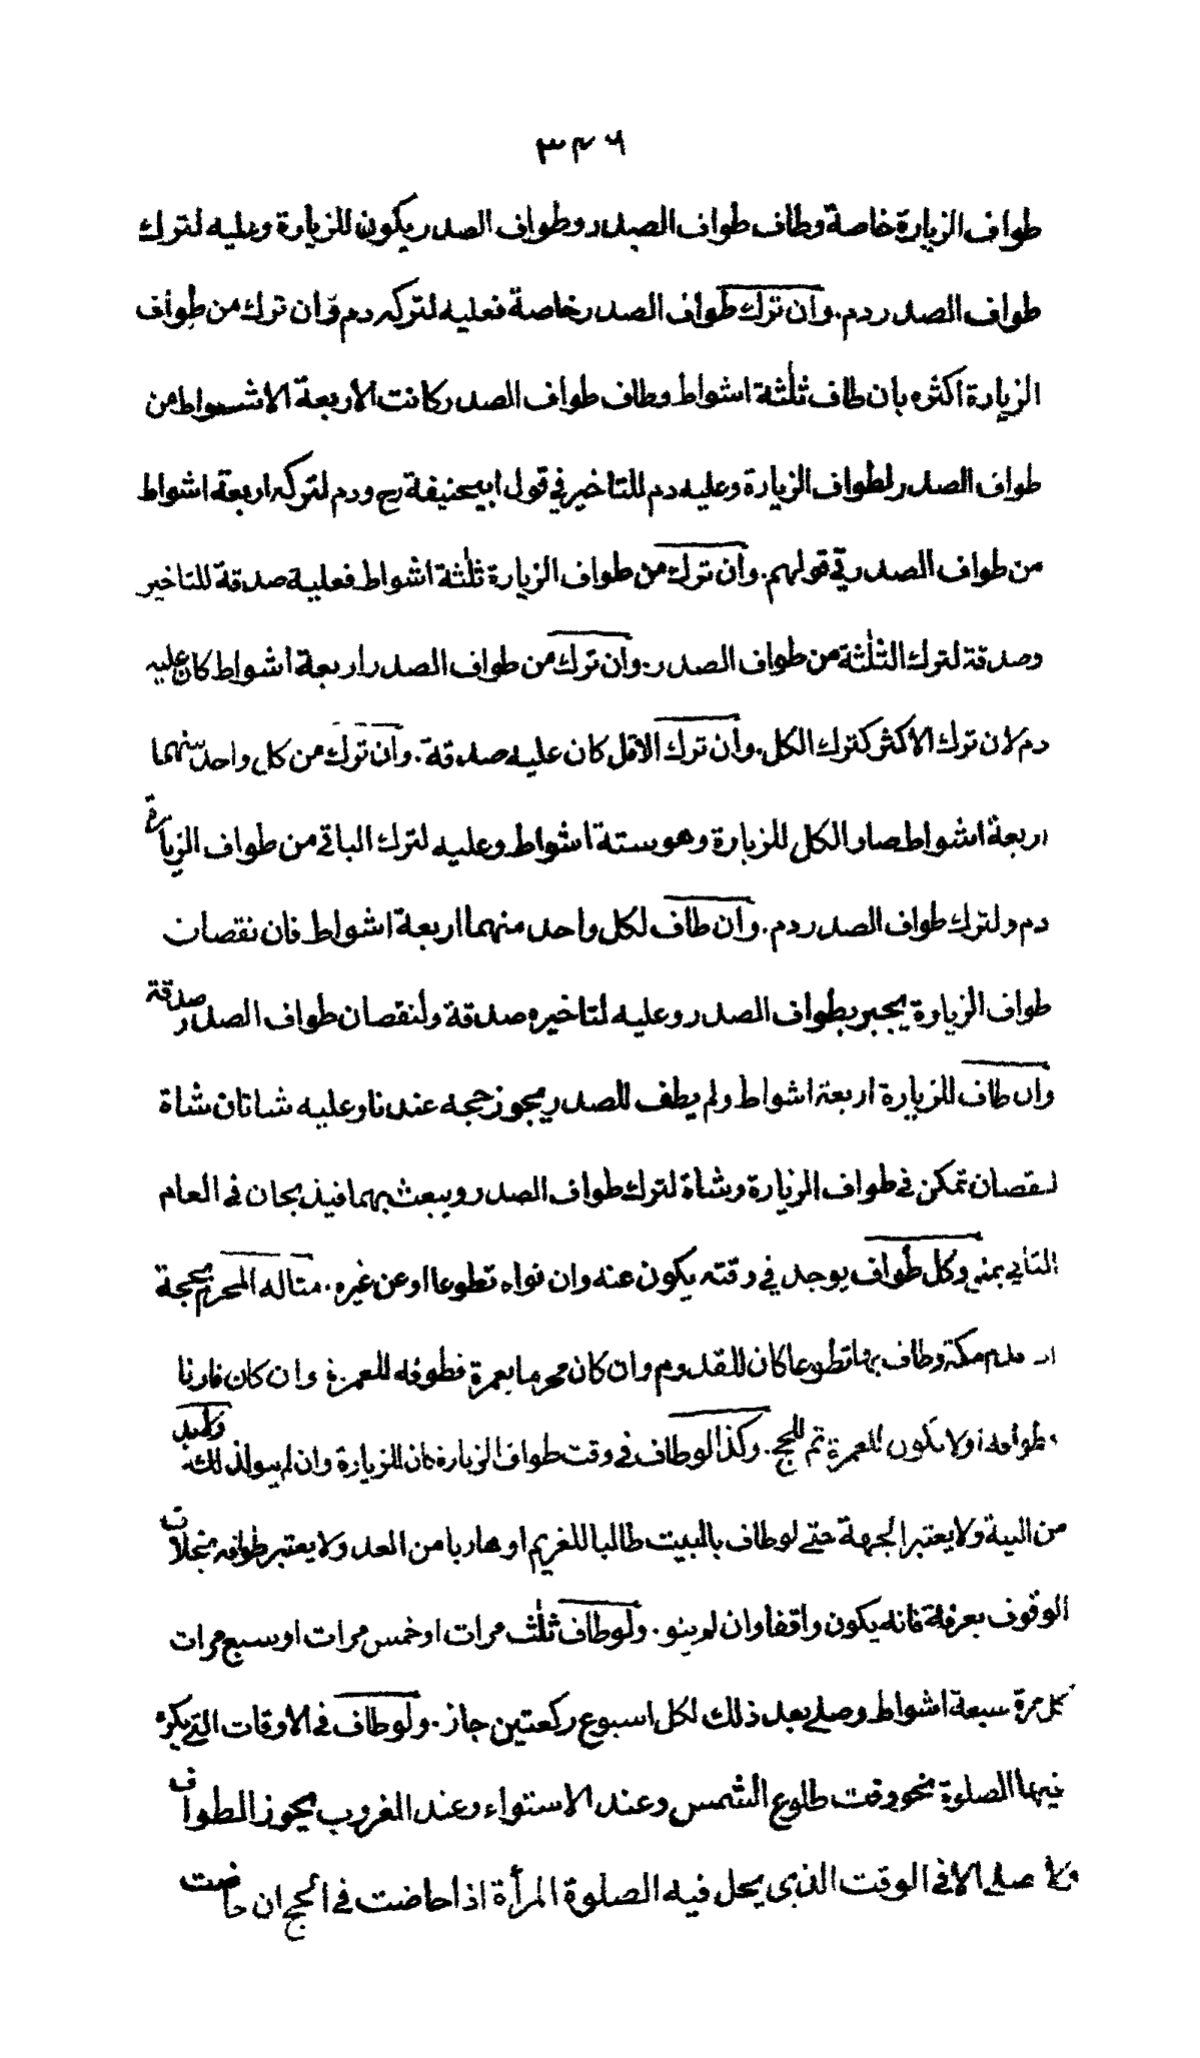 ٣٢٦
طواف الزيارة خاصة وطاف طواف الصدر وطواف الصدر يكون للزيارة وعليه لترك
طواف الصدر دم. وان ترك طواف الصدر خاصة فعليه لتركه دم وان ترك من طواف
الزيارة اكثره بان طاف ثلثة اشواط وطاف طواف الصدر كانت الاربعة الاشواط من
طواف الصدر لطواف الزيارة وعليه دم للتاخير في قول ابيحنيفة رح ودم لتركه اربعة اشواط
من طواف الصدر في قولهم. وان ترك من طواف الزيارة ثلثة اشواط فعليه صدقة للتاخير
وصدقة لترك الثلثة من طواف الصدر. وان ترك من طواف الصدر اربعة اشواط كان عليه
دم لان ترك الاكثر كترك الكل. وان ترك الاقل كان عليه صدقة. وان ترك من كل واحد منهما
اربعة اشواط صار الكل للزيارة وهو ستة اشواط وعليه لترك الباقي من طواف الزيارة
دم ولترك طواف الصدر دم. وان طاف لكل واحد منهما اربعة اشواط فان نقصان
طواف الزيارة يجبر بطواف الصدر وعليه لتاخيره صدقة ولنقصان طواف الصدر صدقة
وان طاف للزيارة اربعة اشواط ولم يطف للصدر يجوز حجه عندنا وعليه شاتان شاة
لنقصان تمكن في طواف الزيارة وشاة لترك طواف الصدر ويبعث بهما فيذبحان في العام
الثاني بمنى وكل طواف يوجد في وقته يكون عنه وان نواه تطوعا او عن غيره. مثاله المحرم بحجة
قدم مكة وطاف بها تطوعا كان للقدوم وان كان محرما بعمرة فطوفه للعمرة وان كان قارنا
فطوافه اولا يكون للعمرة ثم للحج. وكذا لو طاف في وقت طواف الزيارة كان للزيارة وان لم ينو لذلك ولابد
من النية ولا يعتبر الجهة حتى لو طاف بالبيت طالبا للغريم او هاربا من العدو لا يعتبر طوافه بخلاف
الوقوف بعرفة فانه يكون واقفا وان لم ينو. ولو طاف ثلث مرات او خمس مرات او سبع مرات
كل مرة سبعة اشواط وصلى بعد ذلك لكل اسبوع ركعتين جاز. ولو طاف في الاوقات التي يكره
فيها الصلوة نحو وقت طلوع الشمس وعند الاستواء وعند الغروب يجوز الطواف
ولا صلى الا في الوقت الذي يحل فيه الصلوة المرأة اذا حاضت في الحج ان حاضت